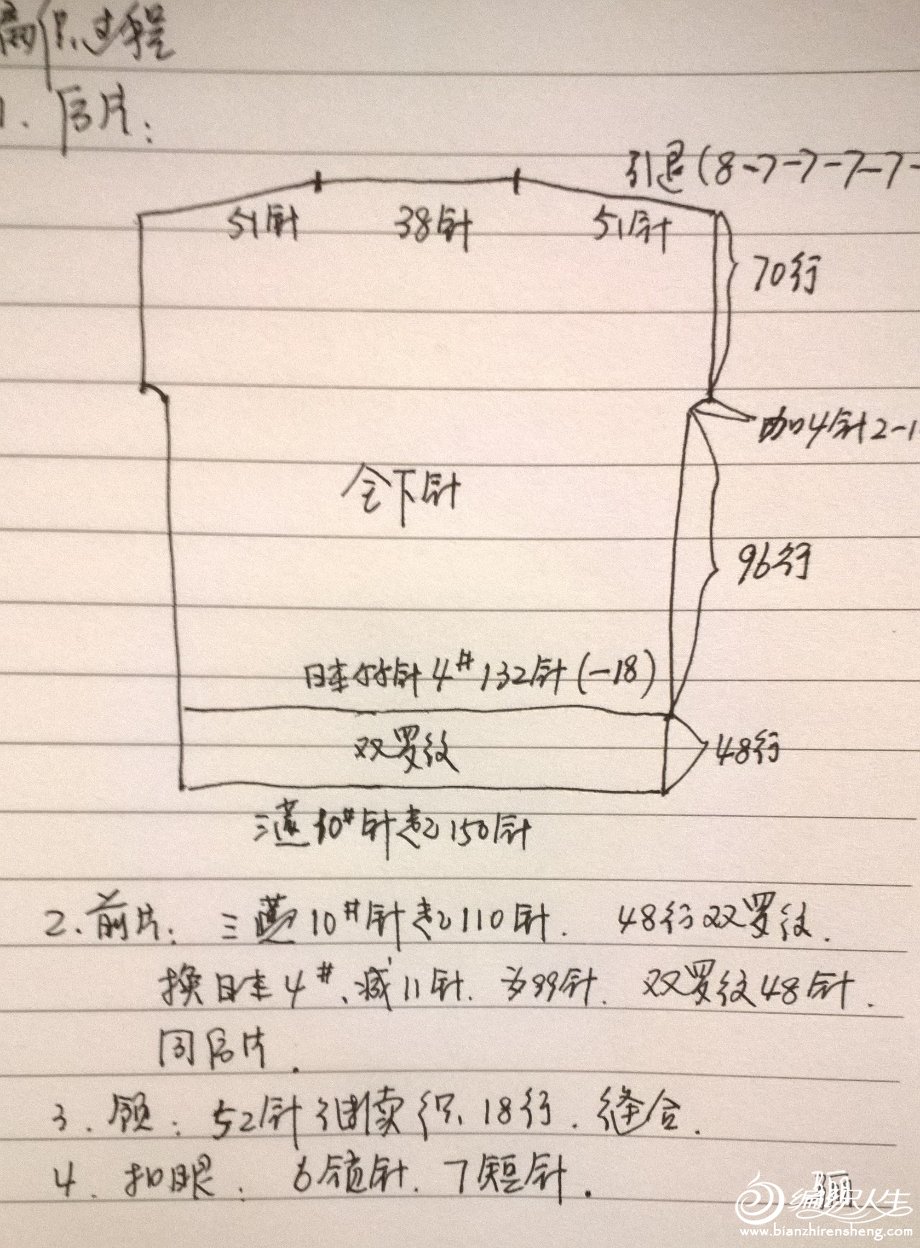 编织过程
1. 后片:
引退(8-7-7-7-7-
51针 38针 51针
70行
加4针2-1
全下针
96行
日本竹针4#132针(-18)
双罗纹
48行
三燕10#针起150针
2. 前片: 三燕10#针起110针. 48行双罗纹.
换日本4#、减11针. 为99针. 双罗纹48针.
同后片.
3. 领: 52针继续织18行. 缝合.
4. 扣眼: 6锁针. 7短针.
编织人生
www.bianzhirensheng.com